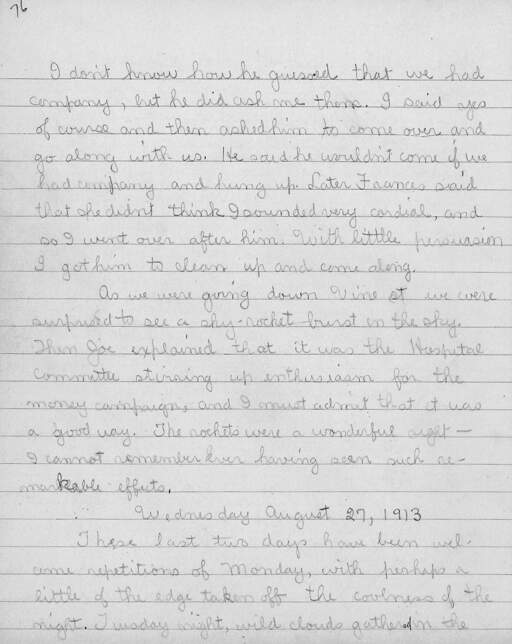 76
I don't know how he guessed that we had
company, but he did ask me then. I said yes
of course and then asked him to come over and
go along with us. He said he wouldn't come if we
had company and hung up. Later Frances said
that she didn't think I sounded very cordial, and
so I went over after him. With little persuasion
I got him to clean up and come along.
As we were going down Vine st we were
surprised to see a sky-rocket burst in the sky.
Then Joe explained that it was the Hospital
Committe stirring up enthusiasm for the
money campaign, and I must admit that it was
a good way. The rockets were a wonderful sight —
I cannot remember ever having seen such re-
markable effects.
Wednesday August 27, 1913
These last two days have been wel-
come repetitions of Monday, with perhaps a
little of the edge taken off the coolness of the
night. Tuesday night, wild clouds gathered in the